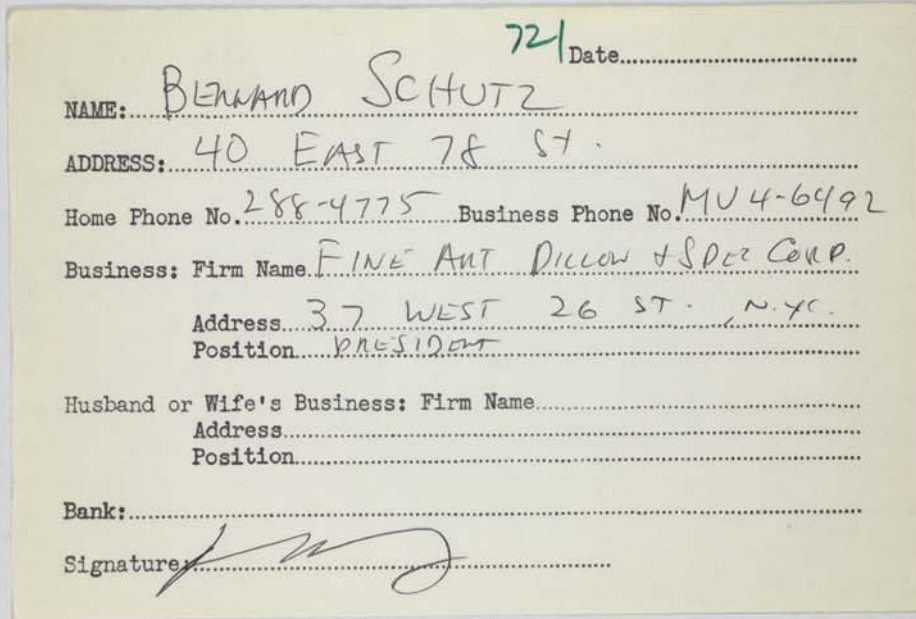 721 Date
NAME: BERNARD SCHUTZ
ADDRESS: 40 EAST 78 ST.
Home Phone No. 288-4775 Business Phone No. MU 4-6492
Business: Firm Name FINE ART PILLOW + SPEC CORP.
Address 37 WEST 26 ST., N.YC.
Position PRESIDENT
Husband or Wife's Business: Firm Name
Address
Position
Bank:
Signature: